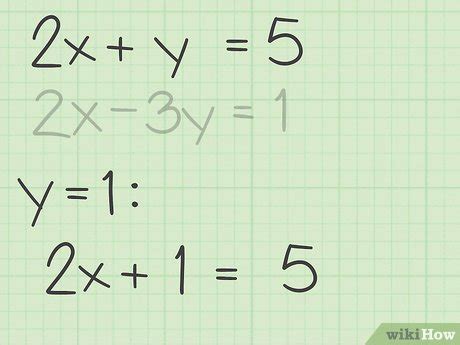 2x + y = 5
2x - 3y = 1
y = 1:
2x + 1 = 5
wikiHow